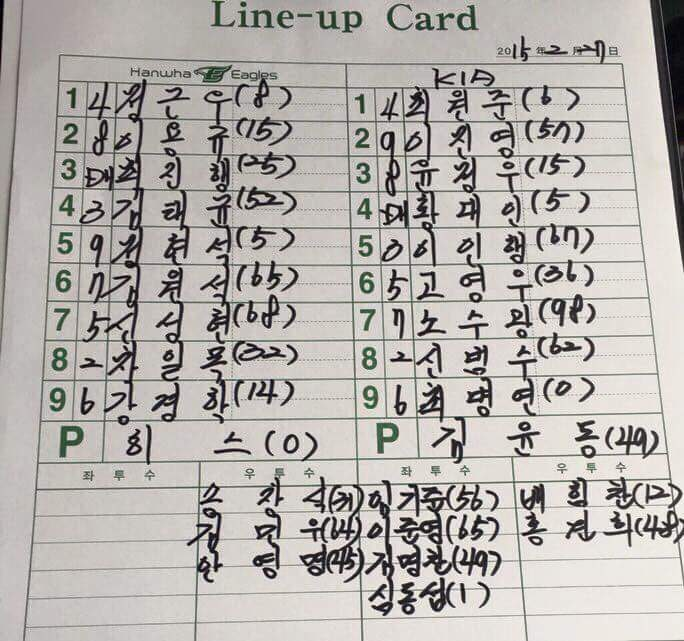 Line-up Card
2015年2月27日
Hanwha Eagles KIA
1 4 정근우(8) 1 4 최원준(6)
2 8 이용규(15) 2 9 이진영(57)
3 DH 최진행(25) 3 8 윤정우(15)
4 3 김태균(52) 4 DH 황대인(5)
5 9 정현석(5) 5 3 이인행(67)
6 7 김원석(65) 6 5 고영우(36)
7 5 신성현(68) 7 7 노수광(98)
8 2 차일목(32) 8 2 신범수(62)
9 6 강경학(14) 9 6 최병연(0)
P 히스(0) P 김윤동(49)
좌투수 우투수 좌투수 우투수
송창식(31) 임기준(56) 배힘찬(12)
김민우(64) 이준영(65) 홍건희(48)
안영명(45) 김명찬(49)
심동섭(1)